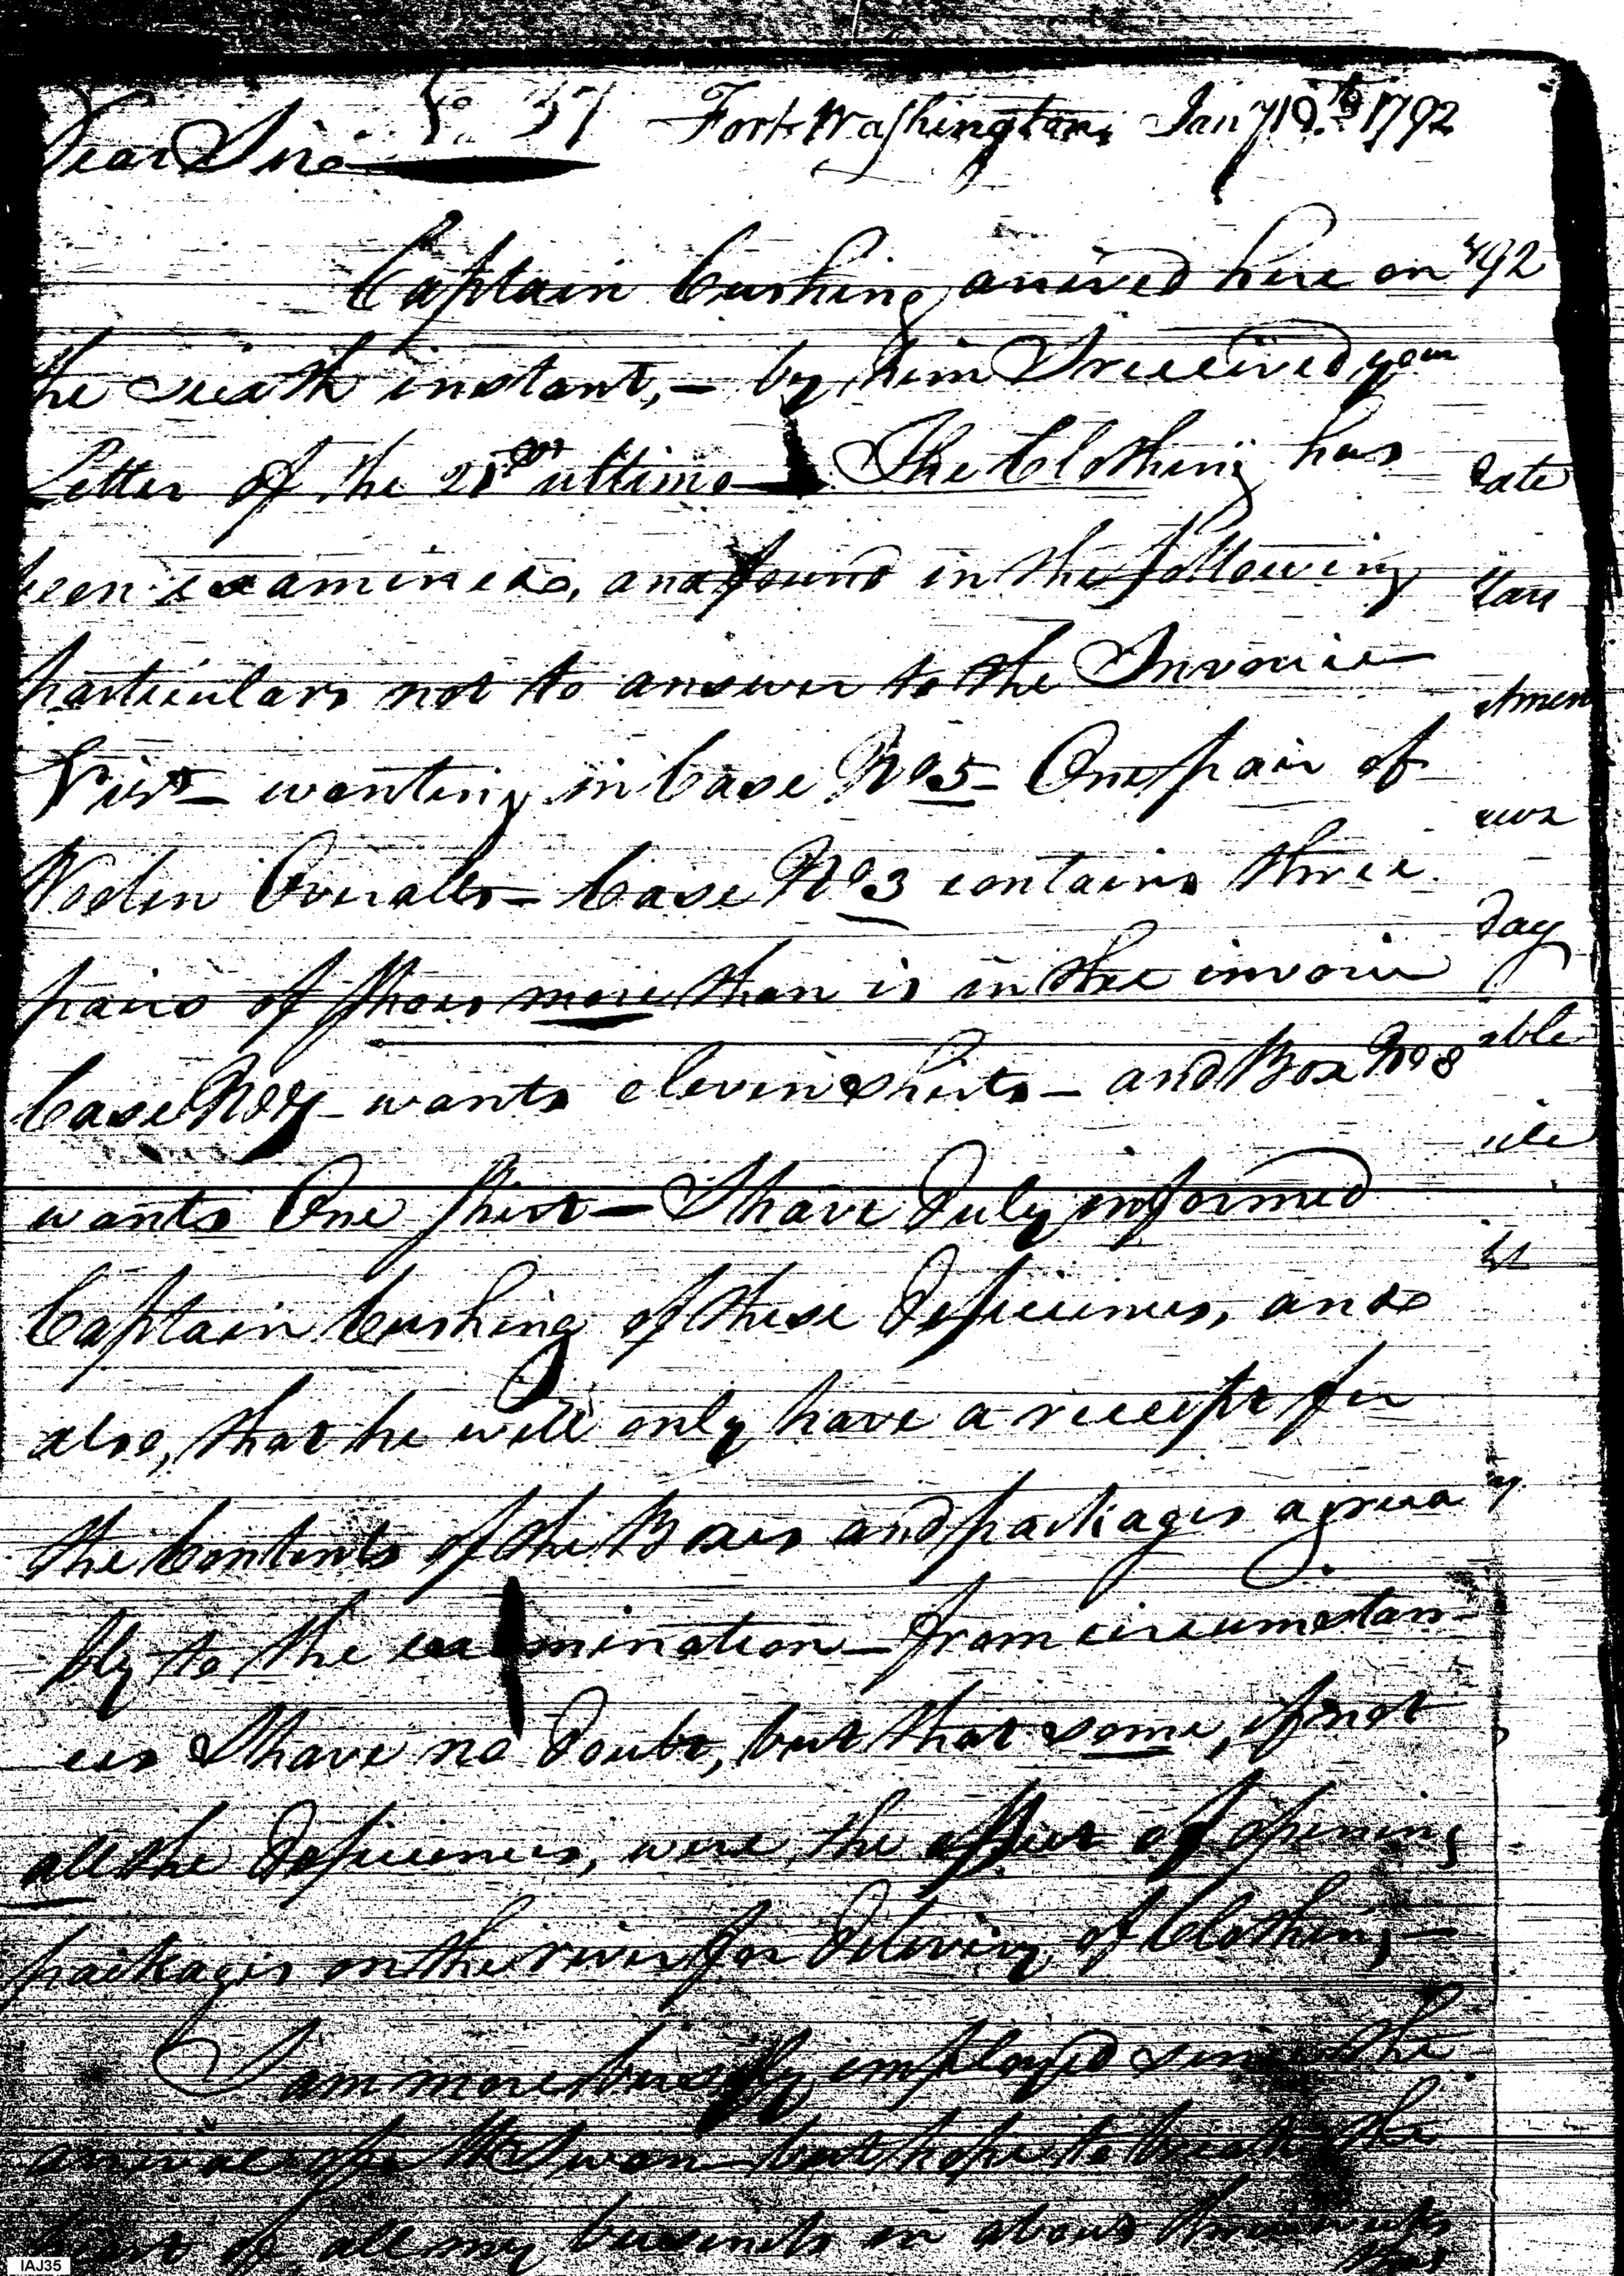 No 37 Fort Washington, Jany 10th 1792
Dear Sir
Captain Cushing arrived here on
the sixth instant, – by him I received your
Letter of the ultimo – The Clothing has
been examined, and found in the following
particulars not to answer to the Invoice
First – wanting in Case No 5 – One pair of
Woolen Overalls – Case No 3 contains three
pairs of Shoes more than is in the invoice
Case No wants eleven shirts – and Box No 8
wants One shirt – I have duly informed
Captain Cushing of these deficiences, and
also, that he will only have a receipt for
the Contents of the Boxes and packages agreea
bly to the examination – from circumstan-
ces I have no doubt, but that some, if not
all the deficiences, were the effect of opening
packages on the river for delivery of Clothing –
I am more busily employed since the
arrival of Mr Swan – but hope to break the
heart of all my business in about three weeks
that
792
date
day
able
IAJ35